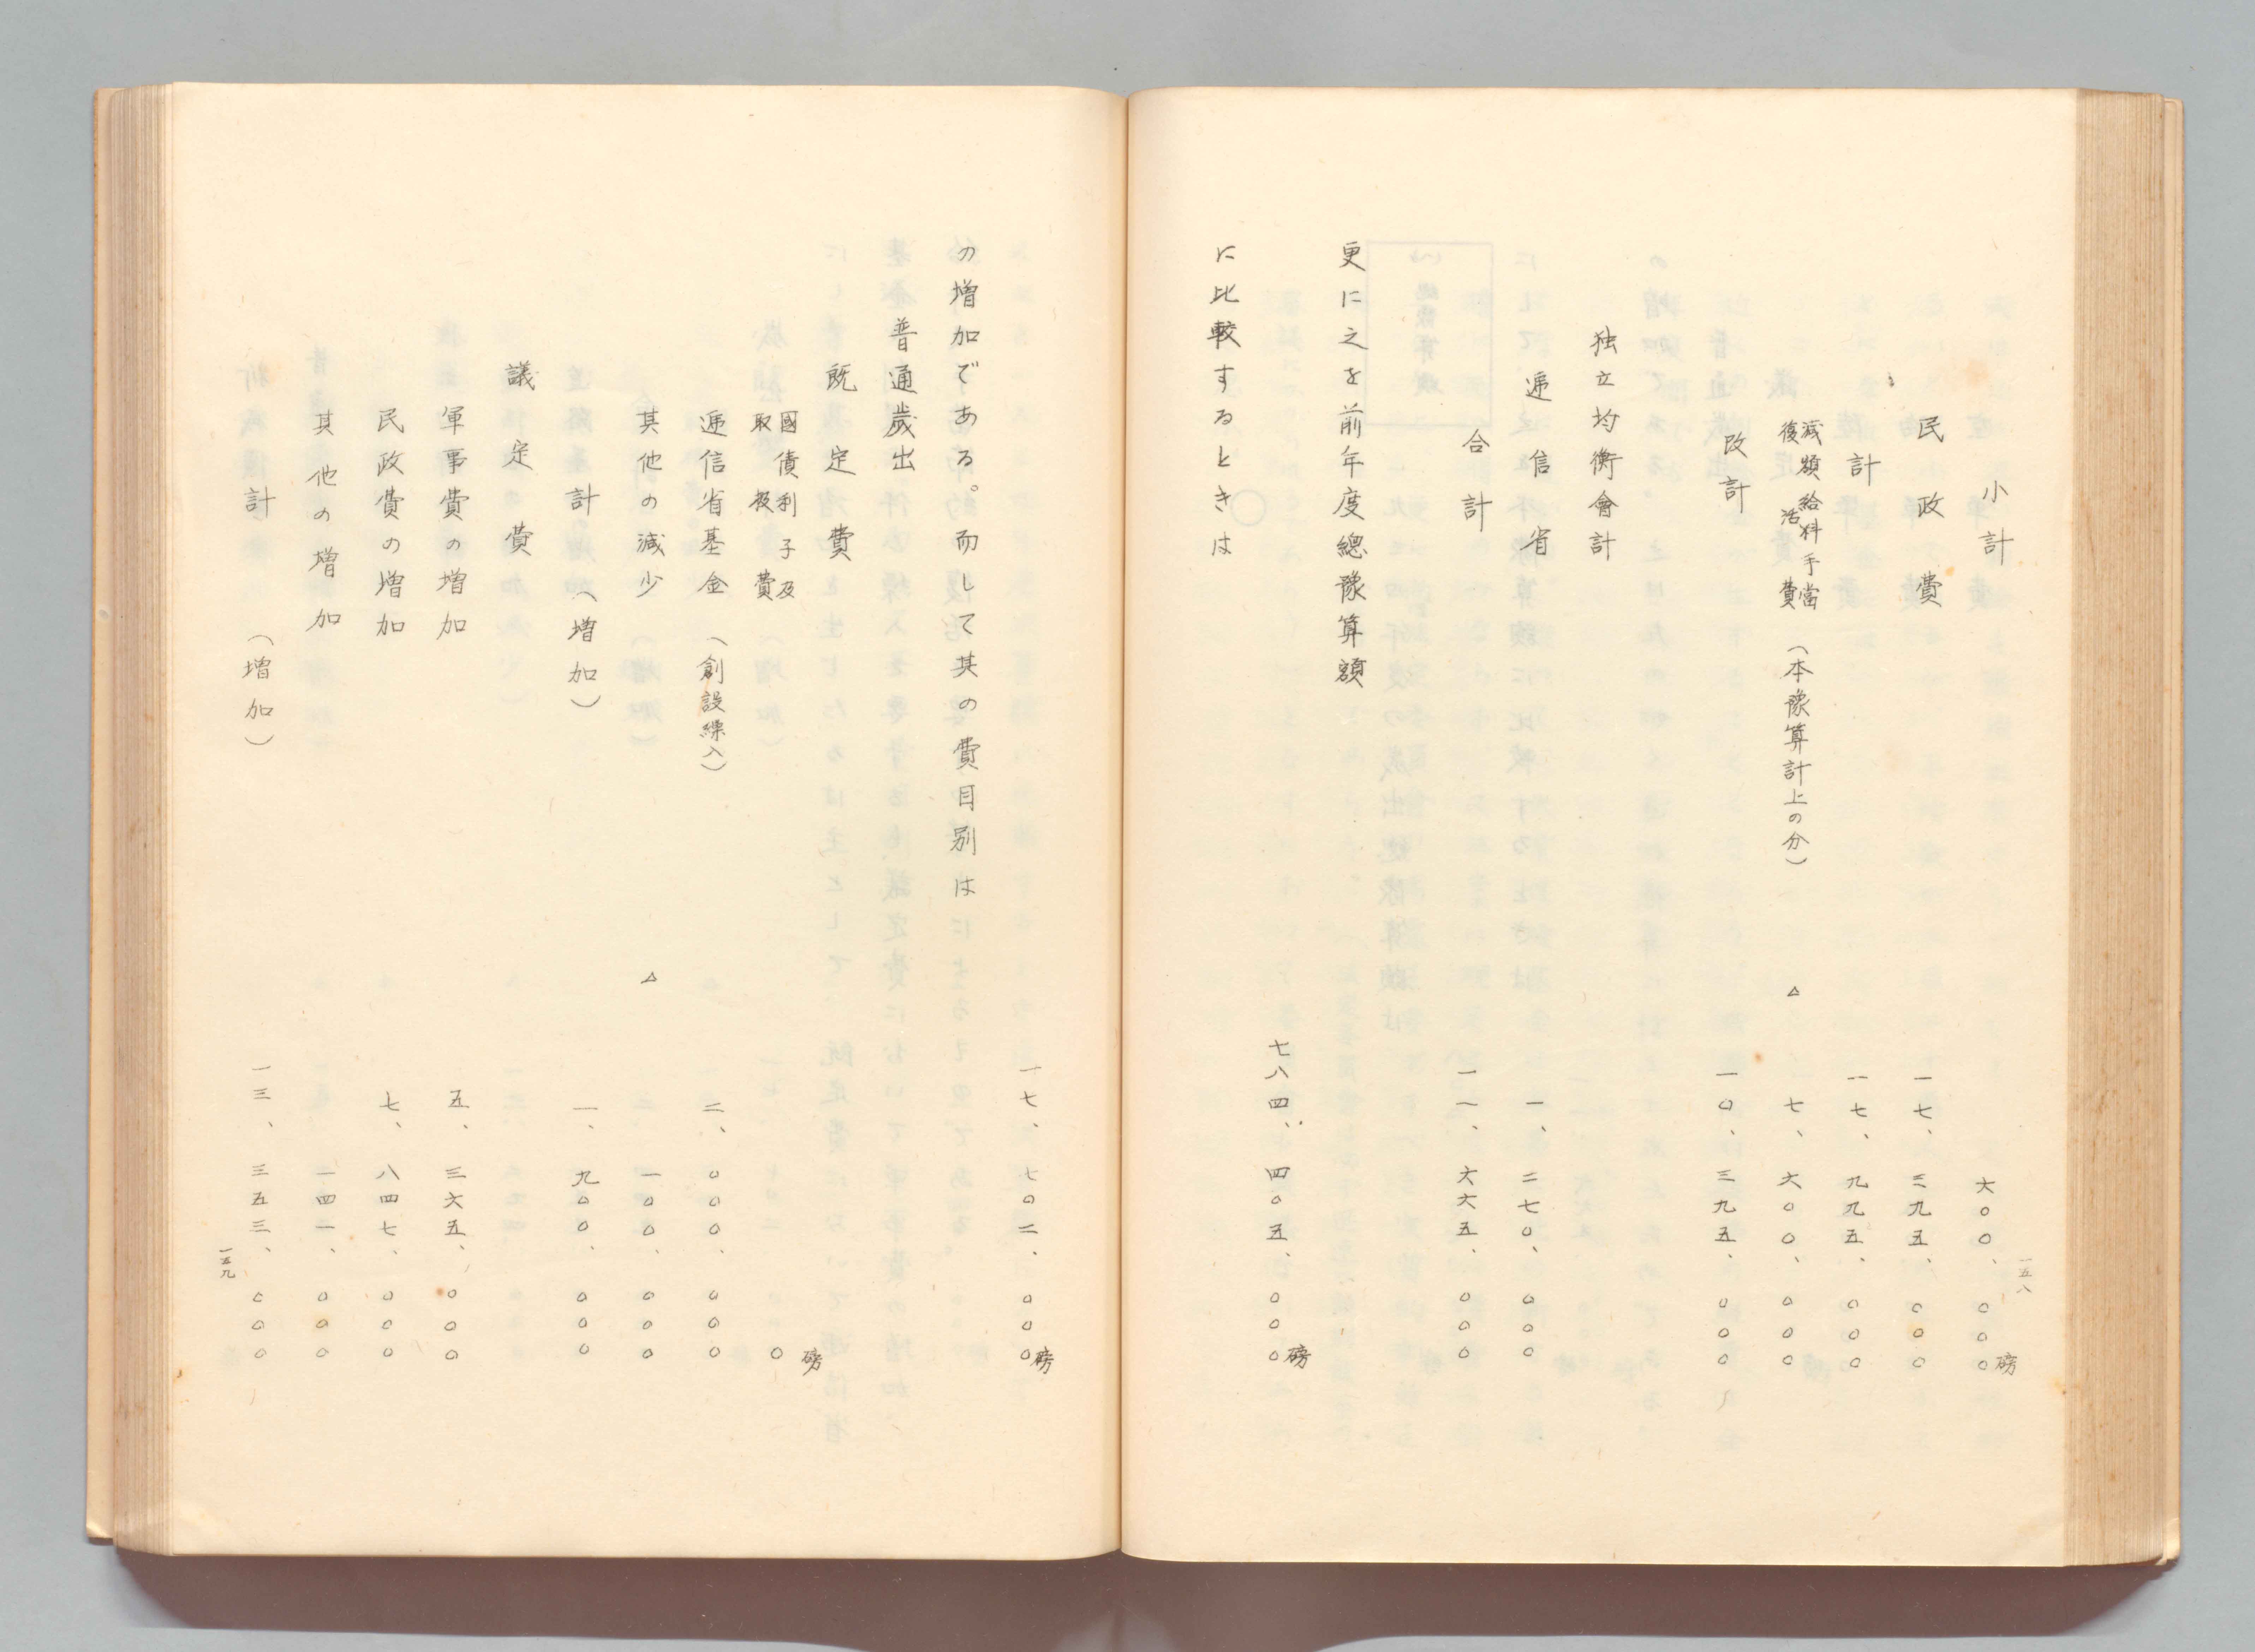 一五八
小計 六〇〇、〇〇〇磅
民政費 一七、三九五、〇〇〇
計 一七、九九五、〇〇〇
減額給料手當復活費(本豫算計上の分) △ 七、六〇〇、〇〇〇
改計 一〇、三九五、〇〇〇
独立均衡會計
逓信省 一、二七〇、〇〇〇
合計 一一、六六五、〇〇〇
更に之を前年度總豫算額
七八四、四〇五、〇〇〇磅
に比較するときは
一七、七〇二、〇〇〇磅
の増加である。而して其の費目別は
普通歳出
既定費 磅
國債利子及取扱費 〇
逓信省基金(創設繰入) 二、〇〇〇、〇〇〇
其他の減少 △ 一〇〇、〇〇〇
計(増加) 一、九〇〇、〇〇〇
議定費
軍事費の増加 五、三六五、〇〇〇
民政費の増加 七、八四七、〇〇〇
其他の増加 一四一、〇〇〇
計(増加) 一三、三五三、〇〇〇
一五九